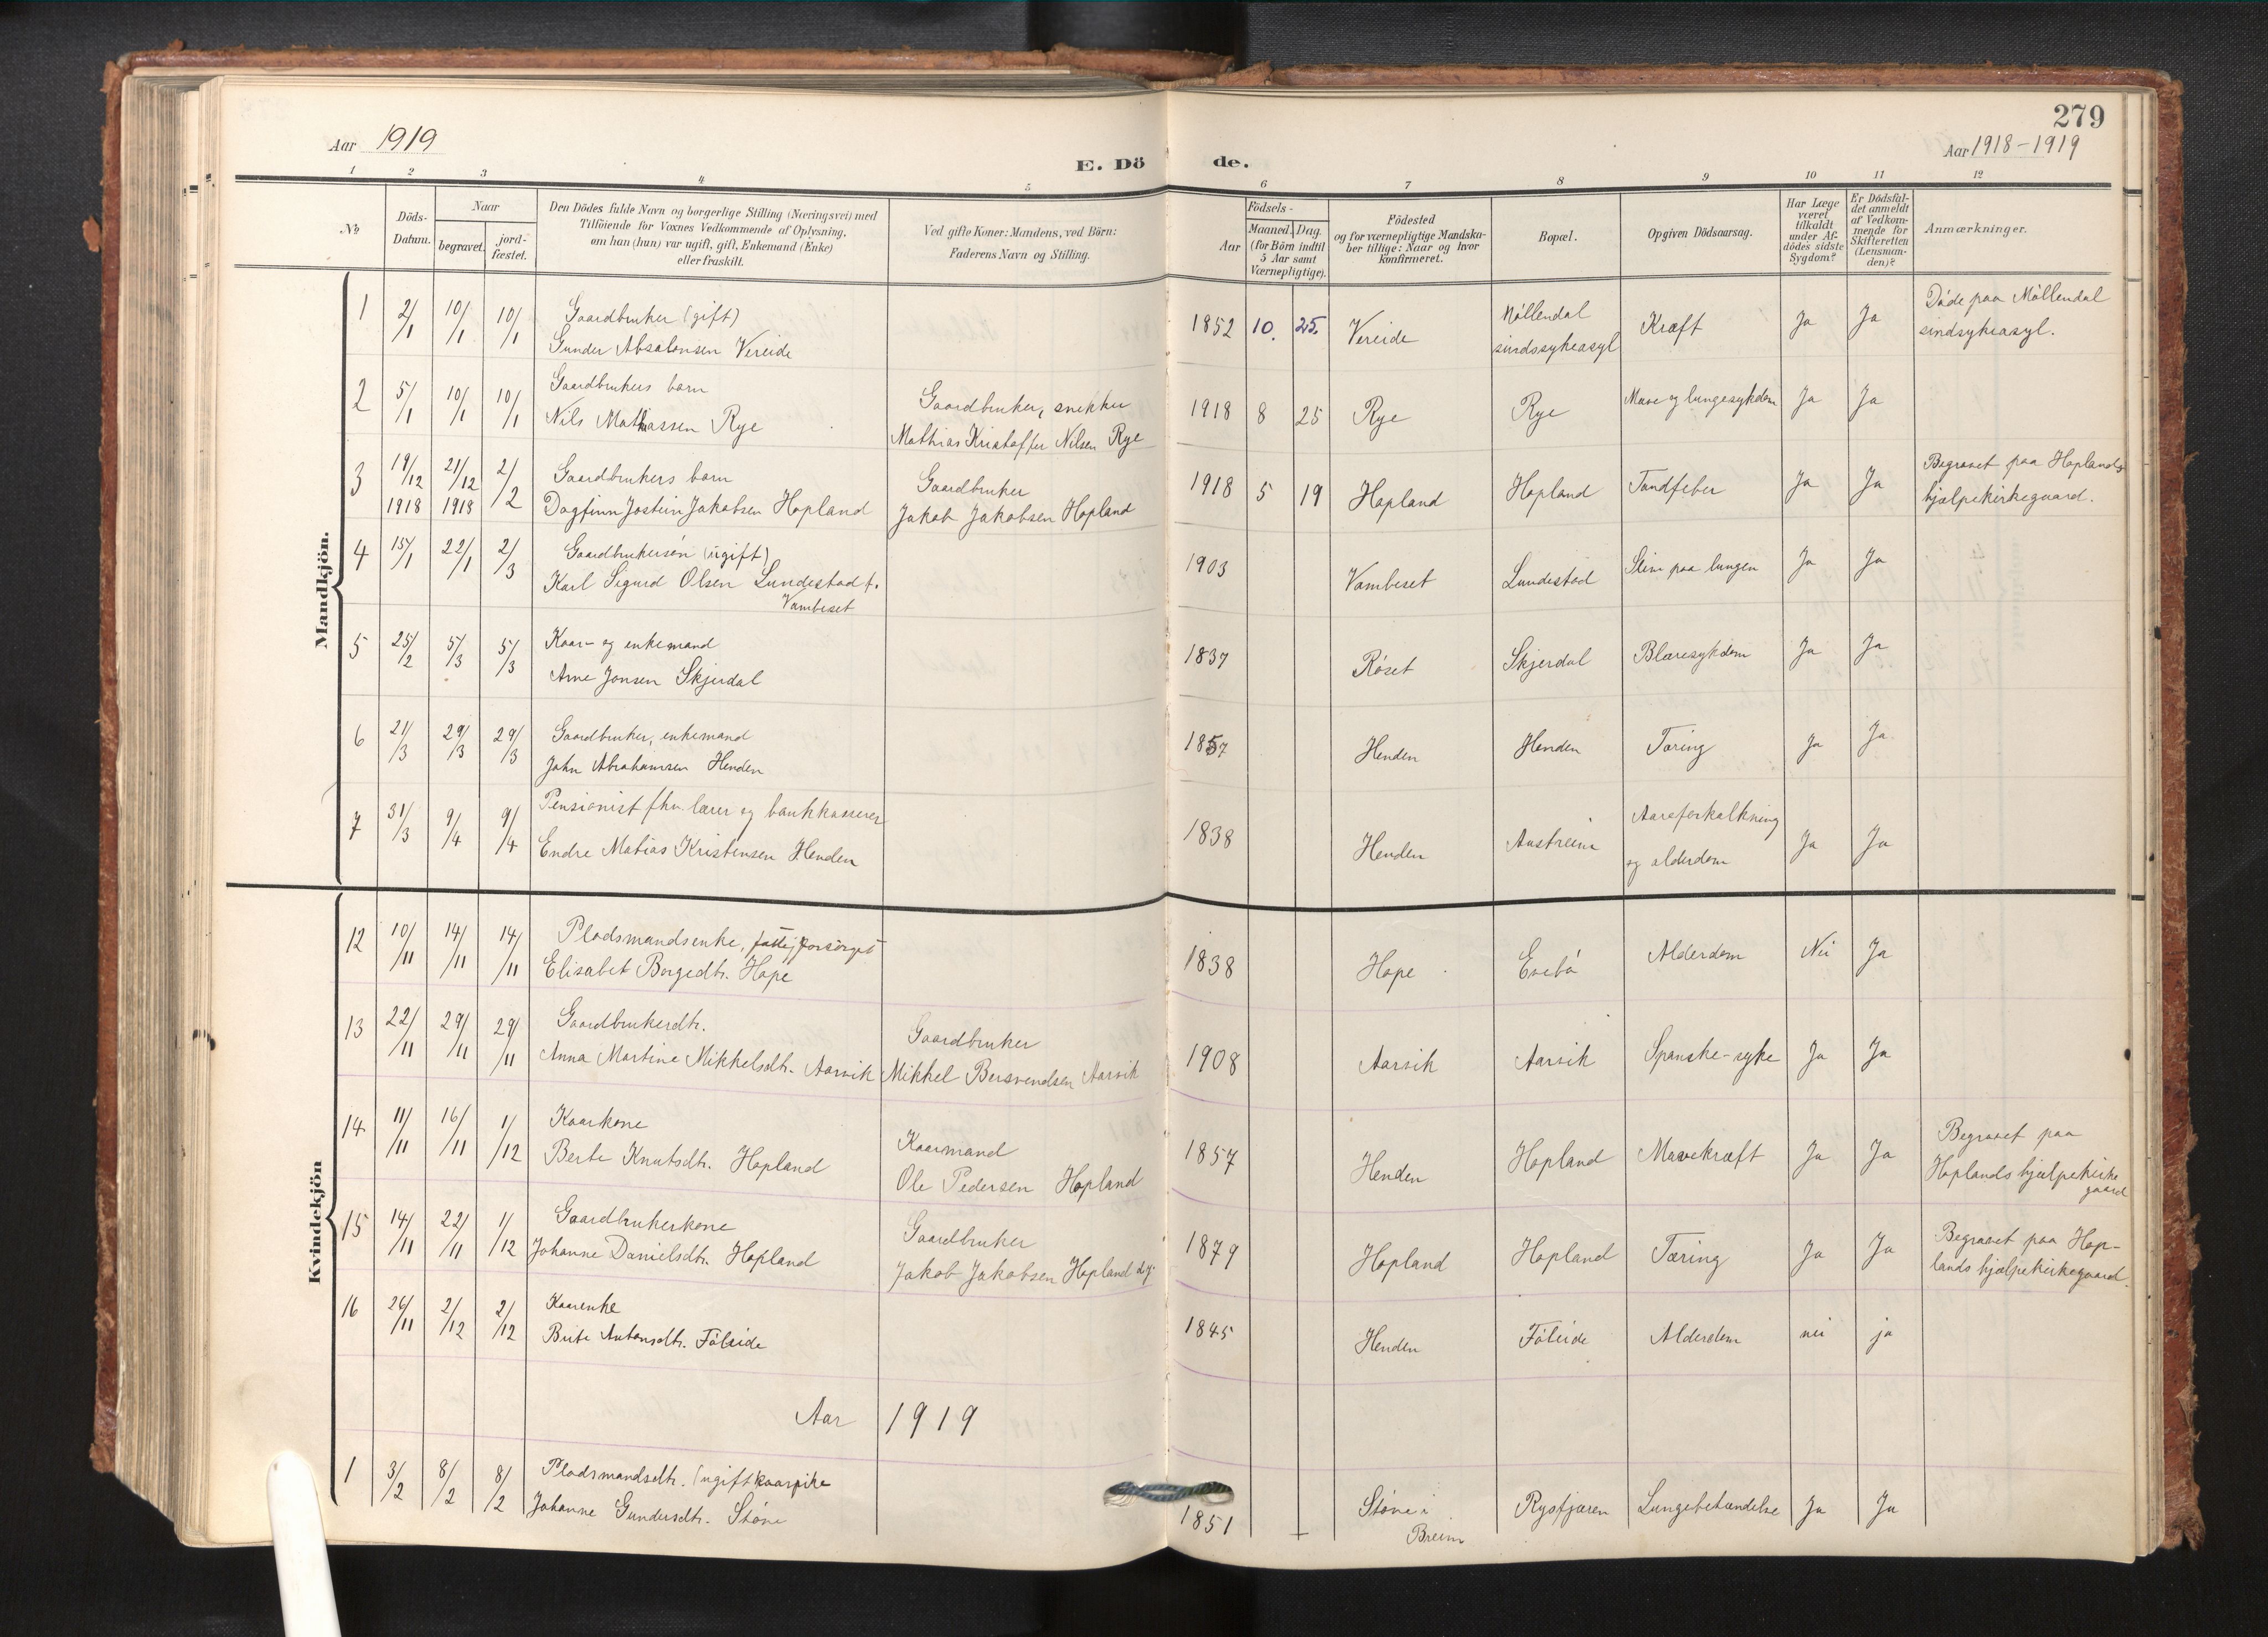 279
Aar 1919
Aar 1918-1919
E. Dö de.
1 2 3 4 5 6 7 8 9 10 11 12
No
Döds-
Datum.
Naar
begravet.
jord-
fæstet.
Den Dödes fulde Navn og borgerlige Stilling (Næringsvei) med
Tilföiende for Voxnes Vedkommende af Oplysning,
om han (hun) var ugift, gift, Enkemand (Enke)
eller fraskilt.
Ved gifte Koner: Mandens, ved Börn:
Faderens Navn og Stilling.
Födsels-
Aar
Maaned. Dag.
(for Börn indtil
5 Aar samt
Værnepligtige).
Födested
og for værnepligtige Mandska-
ber tillige: Naar og hvor
konfirmeret.
Bopæl.
Opgiven Dödsaarsag.
Har Læge
været
tilkaldt
under Af-
dödes sidste
Sygdom?
Er Dödsfal-
det anmeldt
af Vedkom-
mende for
Skifteretten
(Lensman-
den)?
Anmærkninger.
Mandkjön.
1 2/1 10/1 10/1 Gaardbruker (gift)
Gunder Absalonsen Vereide
1852 10. 25. Vereide
Möllendal
sindssykeasyl
Kræft Ja Ja
Döde paa Möllendal
sindsykeasyl.
2 5/1 10/1 10/1 Gaardbrukers barn
Nils Mathiassen Rye
Gaardbruker, snekker
Mathias Kristoffer Nilsen Rye
1918 8 25 Rye Rye Mave og lungesykdom Ja Ja
3 19/12 1918 21/12 1918 2/2 Gaardbrukers barn
Dagfinn Jostein Jakobsen Hopland
Gaardbruker
Jakob Jakobsen Hopland
1918 5 19 Hopland Hopland Tandfeber Ja Ja
Begravet paa Hoplands
hjælpekirkegaard.
4 15/1 22/1 2/3 Gaardbrukersön (ugift)
Karl Sigurd Olsen Lundestad f.
Vambeset
1903 Vambeset Lundestad Slim paa lungen Ja Ja
5 25/2 5/3 5/3 Kaar- og enkemand
Arne Jonsen Skjerdal
1837 Röset Skjerdal Blæresykdom Ja Ja
6 21/3 29/3 29/3 Gaardbruker, enkemand
John Abrahamsen Henden
1857 Henden Henden Tæring Ja Ja
7 31/3 9/4 9/4 Pensionist fhv. lærer og bankkasserer
Endre Matias Kristensen Henden
1838 Henden Austreim
Aareforkalkning
og alderdom
Ja Ja
Kvindekjön
12 10/11 14/11 14/11 Pladsmandsenke, fattigforsörget
Elisabet Borgedtr. Hope
1838 Hope Evebö Alderdom Nei Ja
13 22/11 29/11 29/11 Gaardbrukerdtr.
Anna Martine Mikkelsdtr. Aarvik
Gaardbruker
Mikkel Bersvendsen Aarvik
1908 Aarvik Aarvik Spanske-syke Ja Ja
14 11/11 16/11 1/12 Kaarkone
Berte Knutsdtr. Hopland
Kaarmand
Ole Pedersen Hopland
1857 Henden Hopland Mavekræft Ja Ja
Begravet paa
Hoplands hjælpekirke
gaard
15 14/11 22/11 1/12 Gaardbrukerkone
Johanne Danielsdtr. Hopland
Gaardbruker
Jakob Jakobsen Hopland d.y.
1879 Hopland Hopland Tæring Ja Ja
Begravet paa Hop-
lands hjælpekirkegaard.
16 26/11 2/12 2/12 Kaarenke
Brite Antonsdtr. Föleide
1845 Henden Föleide Alderdom nei ja
Aar 1919
1 3/2 8/2 8/2 Pladsmandsdtr. (ugift) kaarpike
Johanne Gundersdtr. Störe
1851
Störe i
Breim
Rysfjæren Lungebetændelse Ja Ja